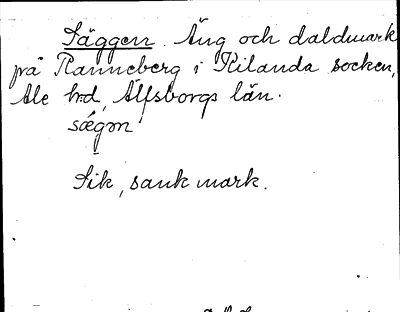 Säggen. Äng och daldmark
på Ranneberg i Kilanda socken,
Ale hd, Älfsborgs län.
sǽgǝn
Sik, sank mark.